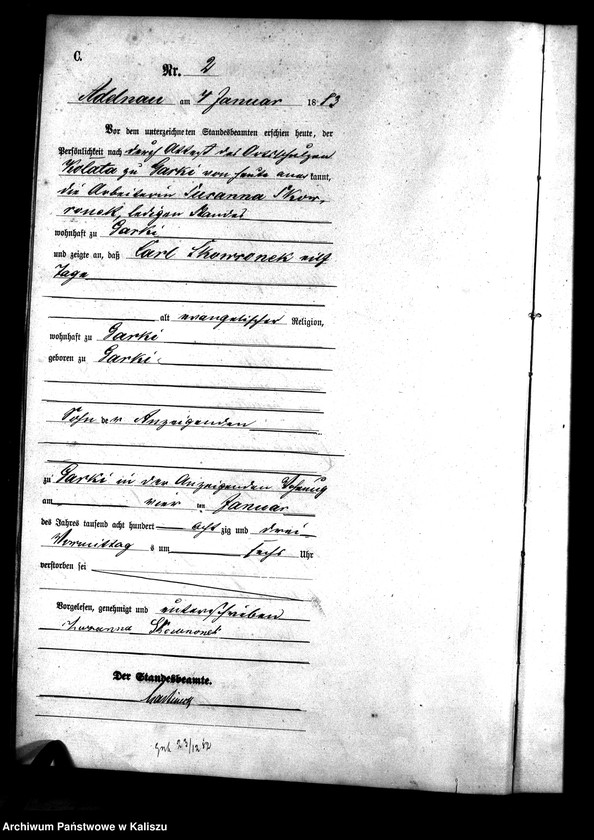 C.
Nr. 2
Adelnau am 4 Januar 1883
Vor dem unterzeichneten Standesbeamten erschien heute, der
Persönlichkeit nach durch Attest des Ortsschulzen
Kolata zu Garki von heute anerkannt,
die Arbeiterin Susanna Skow-
ronek, ledigen Standes
wohnhaft zu Garki
und zeigte an, daß Carl Skowronek eilf
Tage
alt evangelischer Religion,
wohnhaft zu Garki
geboren zu Garki
Sohn der Anzeigenden
zu Garki in der Anzeigenden Wohnung
am vier ten Januar
des Jahres tausend acht hundert achtzig und drei
Vormittags um sechs Uhr
verstorben sei
Vorgelesen, genehmigt und unterschrieben
Susanna Skowronek
Der Standesbeamte.
23/12 82
Archiwum Państwowe w Kaliszu